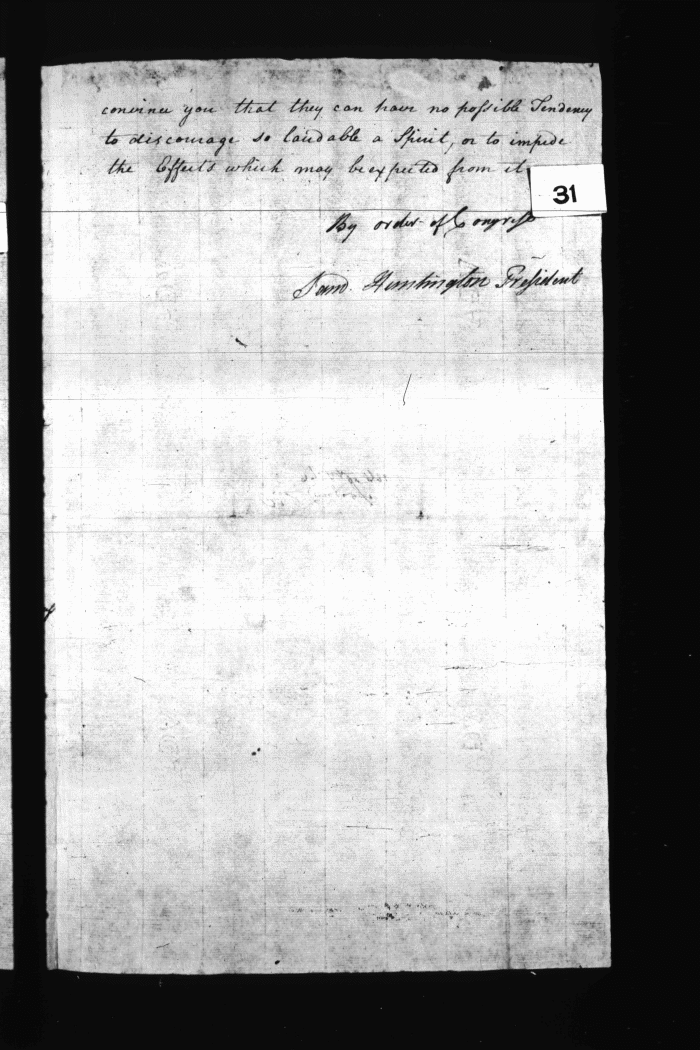 convince you that they can have no possible Tendency
to discourage so laudable a Spirit, or to impede
the Effects which may be expected from it
31
By order of Congress
Saml. Huntington President